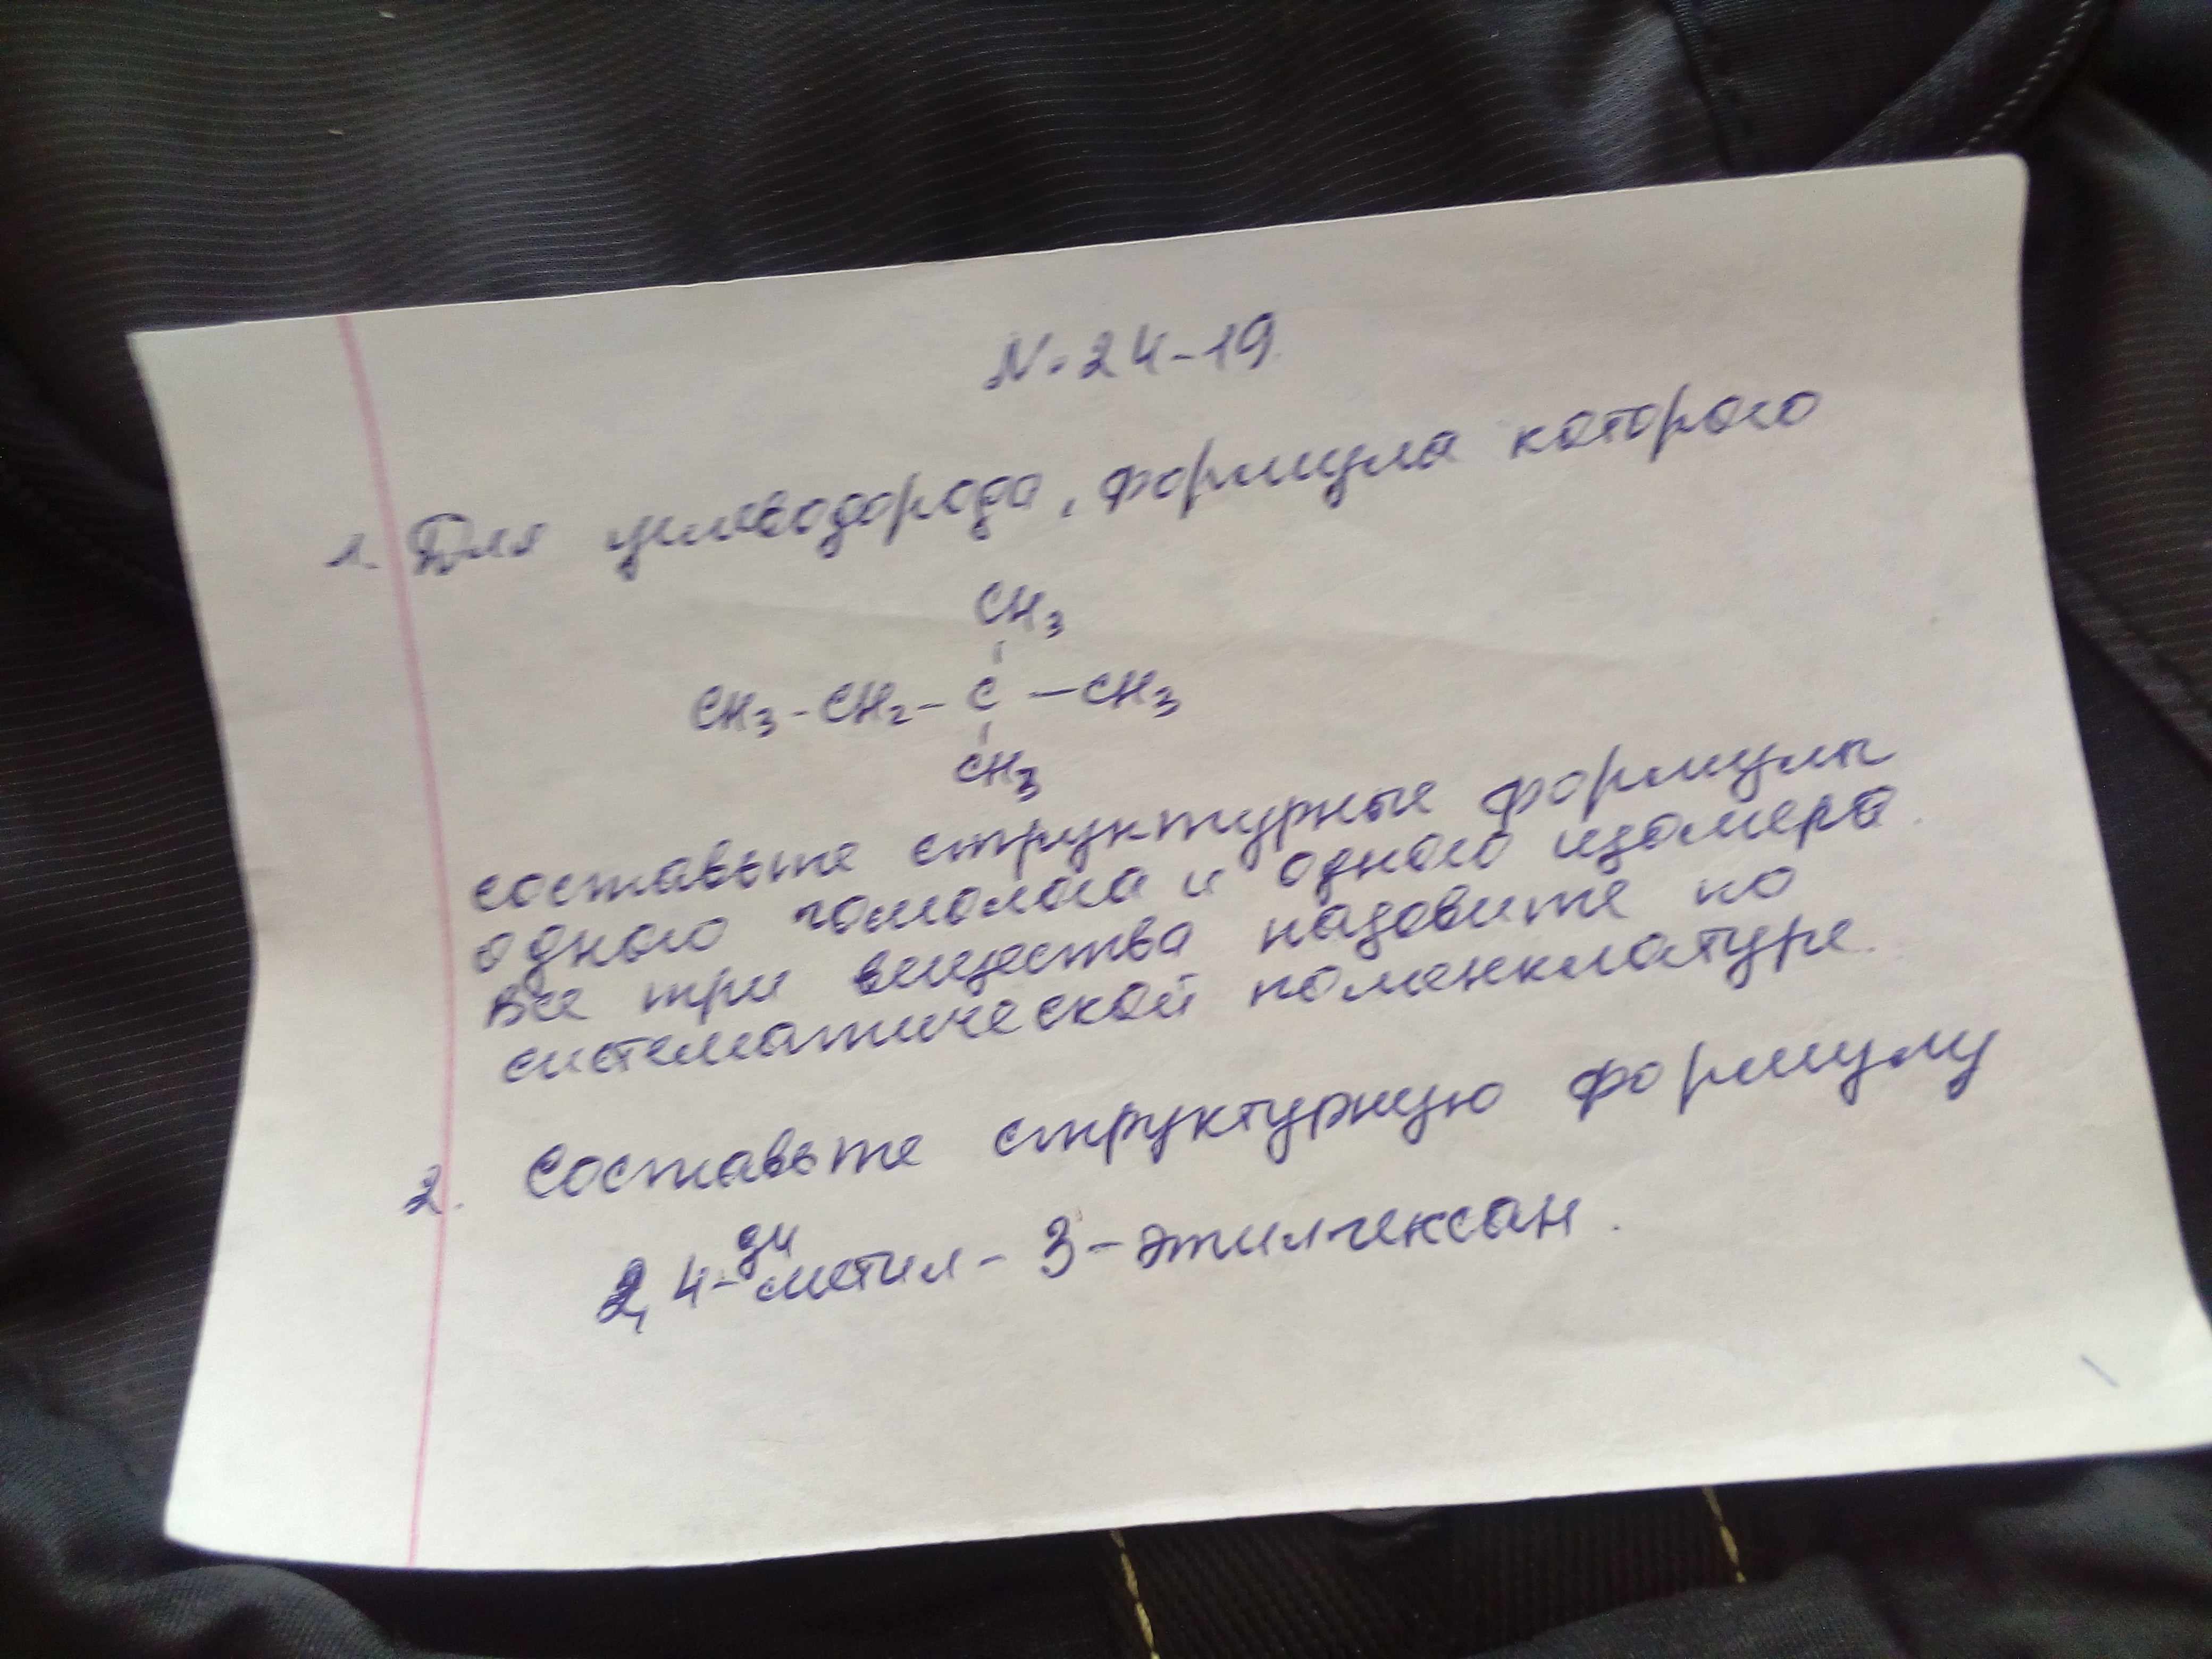 № 24-19
1. Для углеводорода, формула которого
CH3
CH3 - CH2 - C - CH3
CH3
составьте структурные формулы
одного гомолога и одного изомера.
Все три вещества назовите по
систематической номенклатуре.
2. Составьте структурную формулу
2,4-диметил-3-этилгексан.